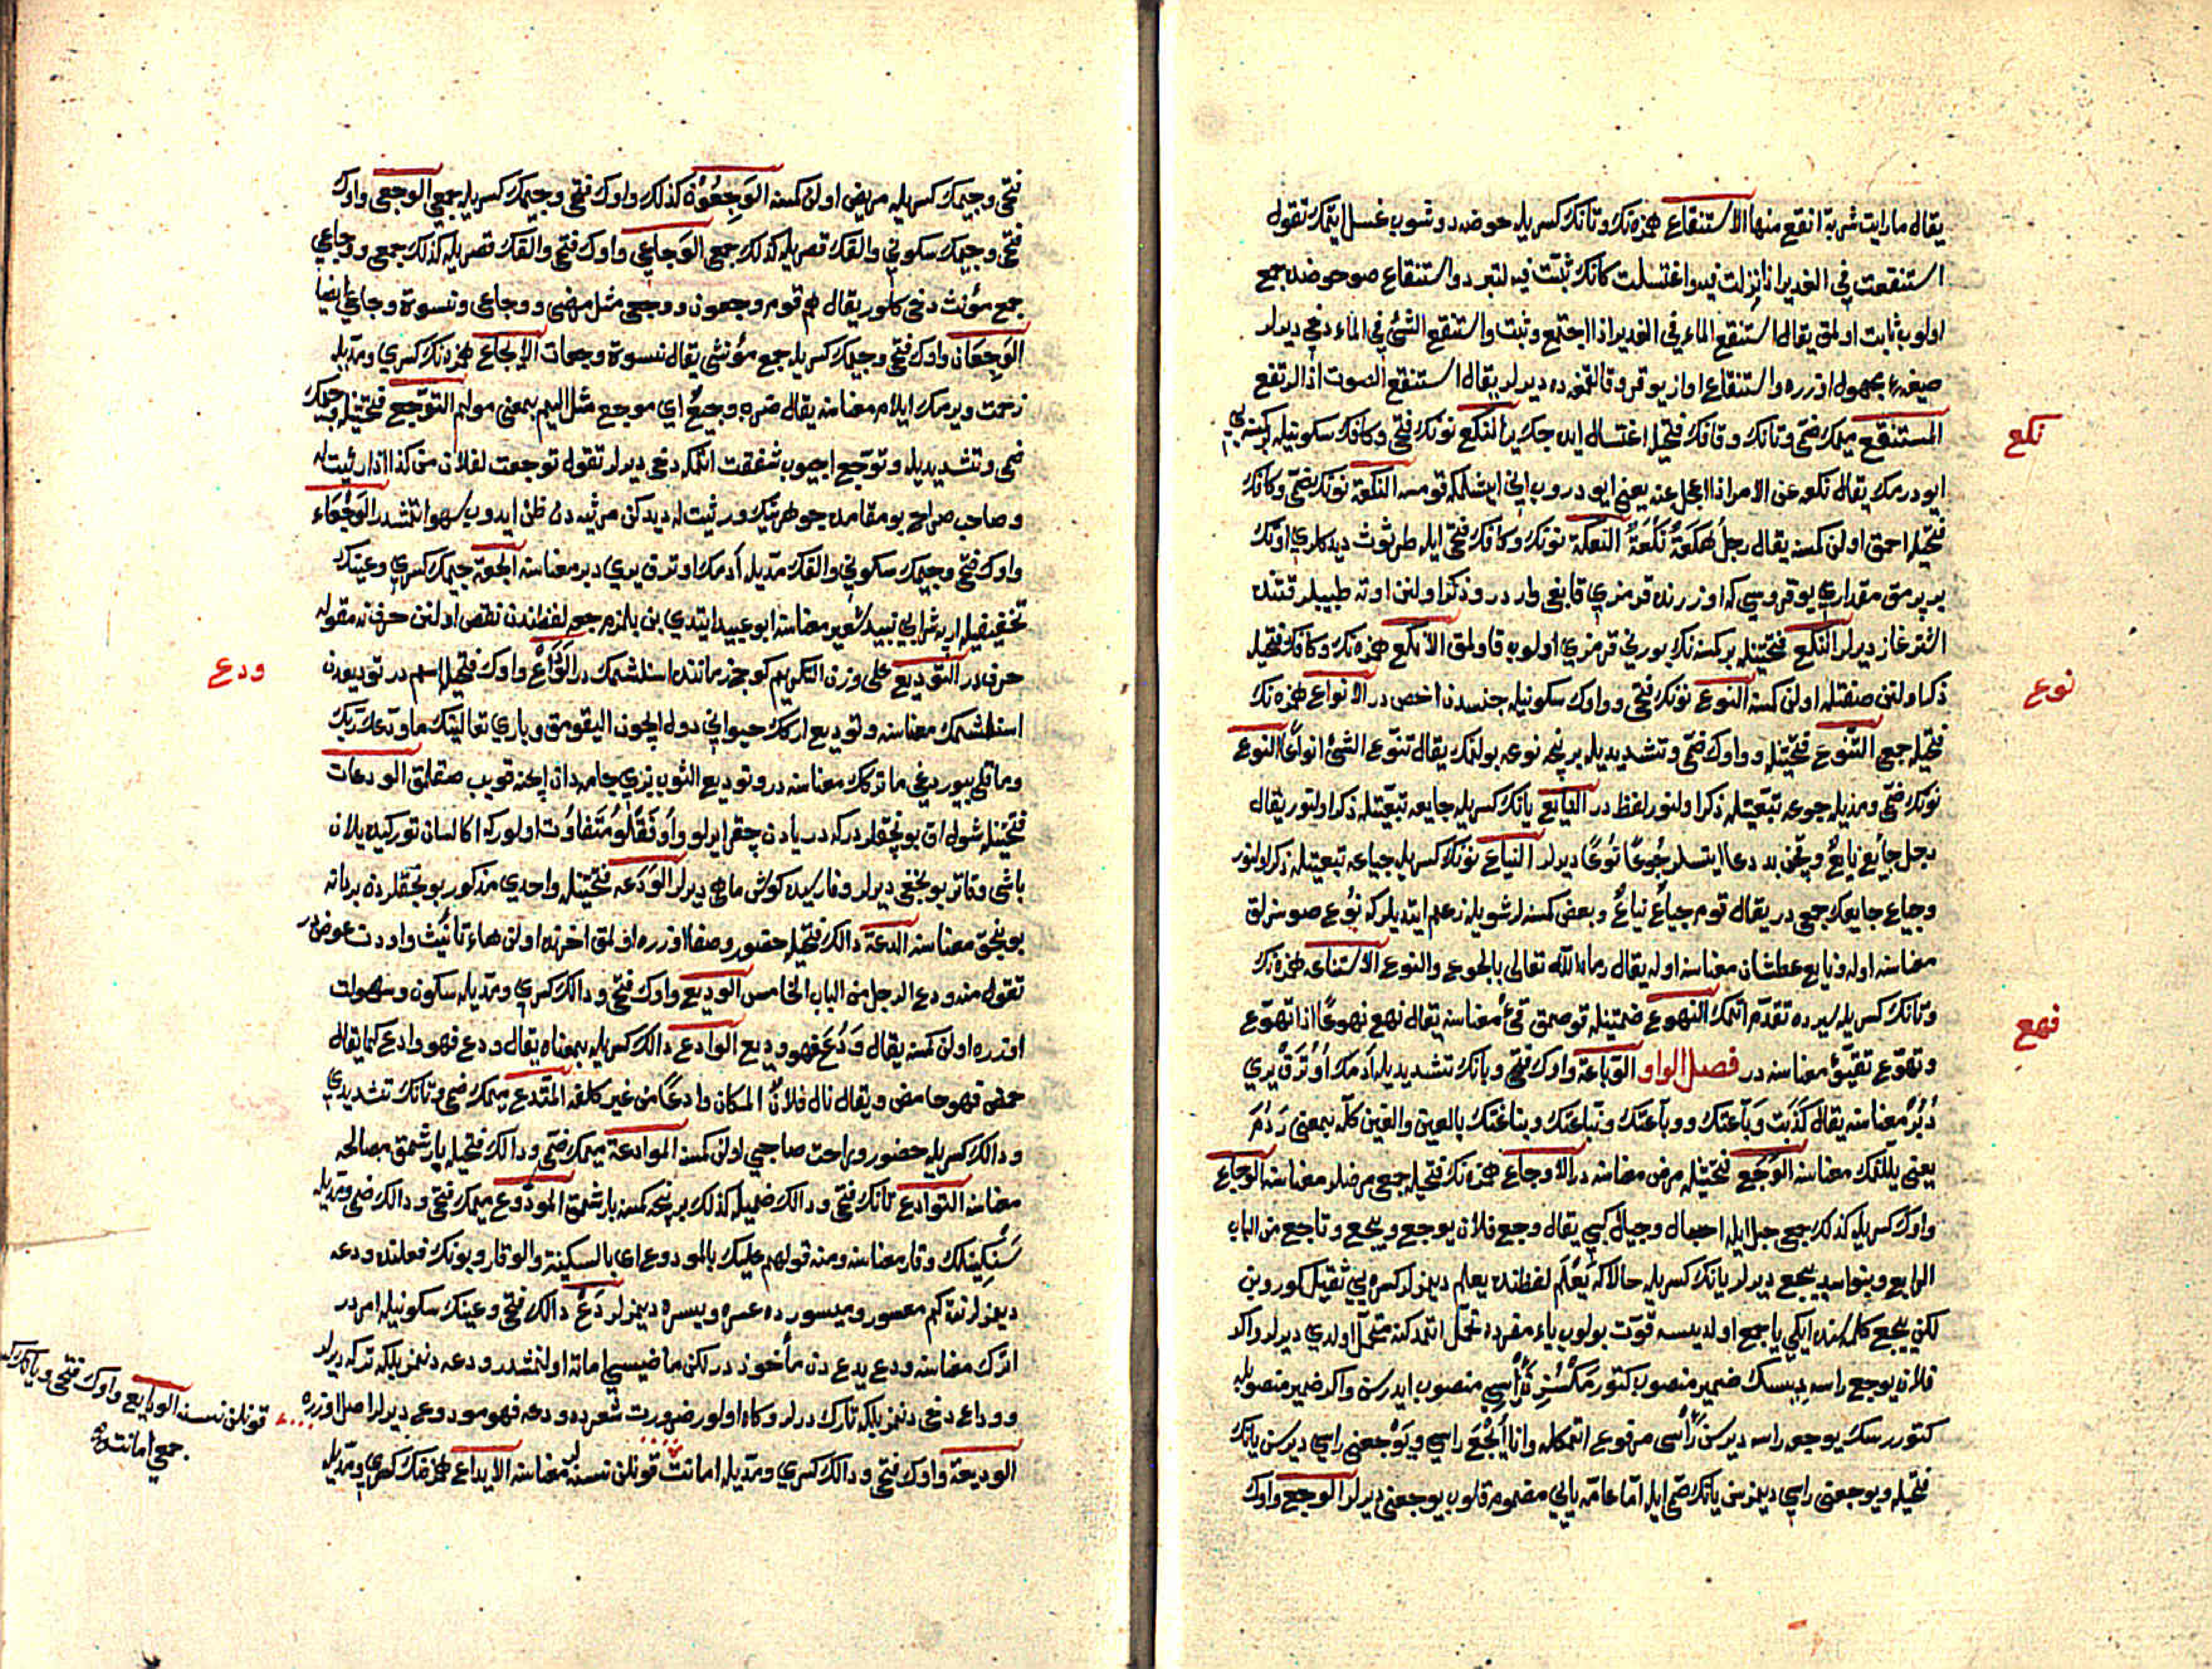 يقال ما رايت شربة انقع منها الاستنقاع همزه‌نك وتانك كسريله حوضه دوشوب غسل ايتمك تقول
استنقعت في الغدير اذا نزلت فيه واغتسلت كانك ثبتّ فيه لتبرد واستنقاع صو حوضه جمع
اولوب ثابت اولمق يقال استنقع الماء في الغدير اذا اجتمع وثبت واستنقع الشئ في الماء دخي ديرلر
صيغهء مجهول اوزره واستنقاع اواز يوقرو قالقمغه ده ديرلر يقال استنقع الصوت اذا ارتفع
المستنقع ميمك ضمّي وتانك وقافك فتحيله اغتسال ايده جك ير النكع نونك فتحي وكافك سكونيله بر كمسه‌يي
نكع
ايودرمك يقال نكعه عن الامر اذا اعجله عنه يعني ايودروب اني ايشلمكه قومسه النكعة نونك ضمّي وكافك
فتحيله احمق اولن كمسه يقال رجل هُكَعَةٌ نُكَعَةٌ النكعة نونك وكافك فتحي ايله طرثوث ديدكلري اوتك
بر پرمق مقداري يوقروسي كه اوزرنده قرمزي قابغي واردر وذكر اولنن اوته طبيبلر قتنده
اشترغاز ديرلر النكع فتحتيله بر كمسه‌نك بورني قرمزي اولوب قاولمق الانكع همزه‌نك وكافك فتحيله
ذكر اولنن صفتله اولن كمسه النوع نونك فتحي وواوك سكونيله جنسدن اخص در الانواع همزه‌نك
نوع
فتحيله جمعي التنوع فتحتيله وواوك ضمّي وتشديديله بر نچه نوعه بولنمك يقال تنوّع الشئ انواعًا النوع
نونك ضمّي ومدّيله جوعه تبعيتله ذكر اولنور لفظدر النايع يانك كسريله جايعه تبعيتله ذكر اولنور يقال
رجل جايع نايع وقچن بد دعا ايتسلر جُوعًا نُوعًا ديرلر النياع نونك كسريله جياعه تبعيتله ذكر اولنور
وجياع جايعك جمعي در يقال قوم جياع نياع وبعض كمسه‌لر شويله زعم ايتديلر كه نُوع صوسزلق
معناسنه اوله ونايع عطشان معناسنه اوله يقال رماه اللّٰه تعالى بالجوع والنوع الاستناعه همزه‌نك
وتانك كسريله سيرده تقدّم اتمك النهوع ضمتيله قوصمق قئ معناسنه يقال نهع نهوعًا اذا تهوّع
نهع
وتهوّع تقيّؤ معناسنه در فصل الواو الوباعة واوك فتحي وبانك تشديديله أدمك اوترق يري
دُبُر معناسنه يقال كذبت وَبّاعتك ووبّاعتك ونبّاعتك ونبّاغتك بالعين والغين كله بمعنى رَدُمَ
يعني يللنمك معناسنه الوَجَع فتحتيله مرض معناسنه در الاوجاع همزه‌نك فتحيله جمعي مرضلر معناسنه الوجاع
واوك كسريله كذلك جمعي جبل ايله اجبال وجبال كبي يقال وجع فلان يوجع وييجع وتاجع من الباب
الرابع وبنو اسد ييجع ديرلر يانك كسريله حالا كه يَعْلَم لفظنده يعلم ديمزلر كسره‌يي ثقيل كوردين
لكن ييجع كلمه‌سنده ايكي يا جمع اولديسه قوّت بولوب ياء مفرده تحمل اتمدكنه متحمل اولدي ديرلر واكر
فلان يوجع راسه ديسك ضمير منصوب كتورمكسزِنْ راسي منصوب ايدرسن واكر ضمير منصوبله
كتوررسك يوجعه راسه ديرسن رأسي مرفوع اتمكله وانا أيْجَعُ راسي ويَوْجعني راسي ديرسن يانك
فتحيله ويوجعني راسي ديمزسن يانك ضمي ايله امّا عامّه يايي مضموم قلوب يوجعني ديرلر الوجع واوك
فتحي وجيمك كسريله مريض اولن كمسه الوَجِعُونَ كذلك واوك فتحي وجيمك كسريله جمعي الوجعى واوك
فتحي وجيمك سكوني والفك قصريله كذلك جمعي الوَجاعى واوك فتحي والفك قصريله كذلك جمعي ووجاعى
جمع مؤنث دخي كلور يقال هم قوم وجعون ووجعى مثل مرضى ووجاعى ونسوة وجاعى ايضا
الوَجِعَات واوك فتحي وجيمك كسريله جمع مؤنثي يقال نسوة وجعات الايجاع همزه‌نك كسري ومدّيله
زحمت ويرمك ايلام معناسنه يقال ضربه وجيعٌ اي موجع مثل اليم بمعنى مولم التوجّع فتحتيله وجيمك
ضمي وتشديديله وتوجّع اجيوب شفقت اتمكه دخي ديرلر تقول توجعت لفلان من كذا اذا رثيت له
وصاحب صراح بو مقامده جوهرينك ورثيت له ديدكن مرثيه دن ظن ايدوب سهو اتمشدر الوَجْعَاء
واوك فتحي وجيمك سكوني والفك مدّيله أدمك اوترق يري دبر معناسنه الجعة جيمك كسري وعينك
تخفيفيله اربه شرابي نبيذ شعير معناسنه ابو عبيد ايتدي بن بلمزم جعه لفظندن نقص اولنن حرف نه مقوله
حرفدر التوديع على وزن التكريم كوچ زماننده اسنلشمك در الوَدَاعْ واوك فتحيله اسم در توديعدن
ودع
اسنلشمك معناسنه وتوديع اركك حيواني دول ايچون اليقومق وباري تعالينك ما ودّعك ربّك
وما قلى بيوردغي ما تركك معناسنه در وتوديع الثوب بزي جامه‌دان ايچنه قويب صقلمق الودعات
فتحتيله شول اق بونجقلردر كه دريادن چقرايرلو واوفقلو متفاوت اولور كه اكا لسان توركيده يلان
باشي وقاتر بونجغي ديرلر وفارسيده كوش ماهي ديرلر الوَدَعه فتحتيله واحدي مذكور بونجقلردن بر دانه
بونجق معناسنه الدعة دالك فتحيله حضور وصفا اوزره اولمق اخرنده اولن هاء تانيث واودن عوضدر
تقول منه ودع الرجل من الباب الخامس الوديع واوك فتحي ودالك كسري ومدّيله سكون وسهولت
اوزره اولن كمسه يقال وَدُعَ فهو وديع الوادع دالك كسريله بمعناه يقال ودع فهو وادع كما يقال
حمض فهو حامض ويقال نال فلانٌ المكان وادعًا من غير كلفه المتّدع ميمك ضمي وتانك تشديدي
ودالك كسريله حضور وراحت صاحبي اولن كمسه الموادعة ميمك ضمّي ودالك فتحيله بارشمق مصالحه
معناسنه التوادع تانك فتحي ودالك ضمّيله كذلك بر نچه كمسه بارشمق المودوع ميمك فتحي ودالك ضمي ومدّيله
سَكِينلك وقار معناسنه ومنه قولهم عليك بالمودوع اي بالسكينة والوقار وبونك فعلنده ودعه
ديمزلر نته كم معسور وميسورده عسره ويسره ديمزلر دَعْ دالك فتحي وعينك سكونيله امردر
اترك معناسنه ودع يدع دن مأخوذدر لكن ماضيسي اماته اولنمشدر ودعه دنمز بلكه تركه ديرلر
ووداع دخي دنمز بلكه تارك درلر وكاه اولور ضرورت شعرده ودعه فهو مودوع ديرلر اصل اوزره
الوديعة واوك فتحي ودالك كسري ومدّيله امانت قونلن نسنه‌لر معناسنه الايداع همزه‌نك كسري ومدّيله
قونلن نسنه الودايع واوك فتحي ويانك كسريله
جمعي امانتلر